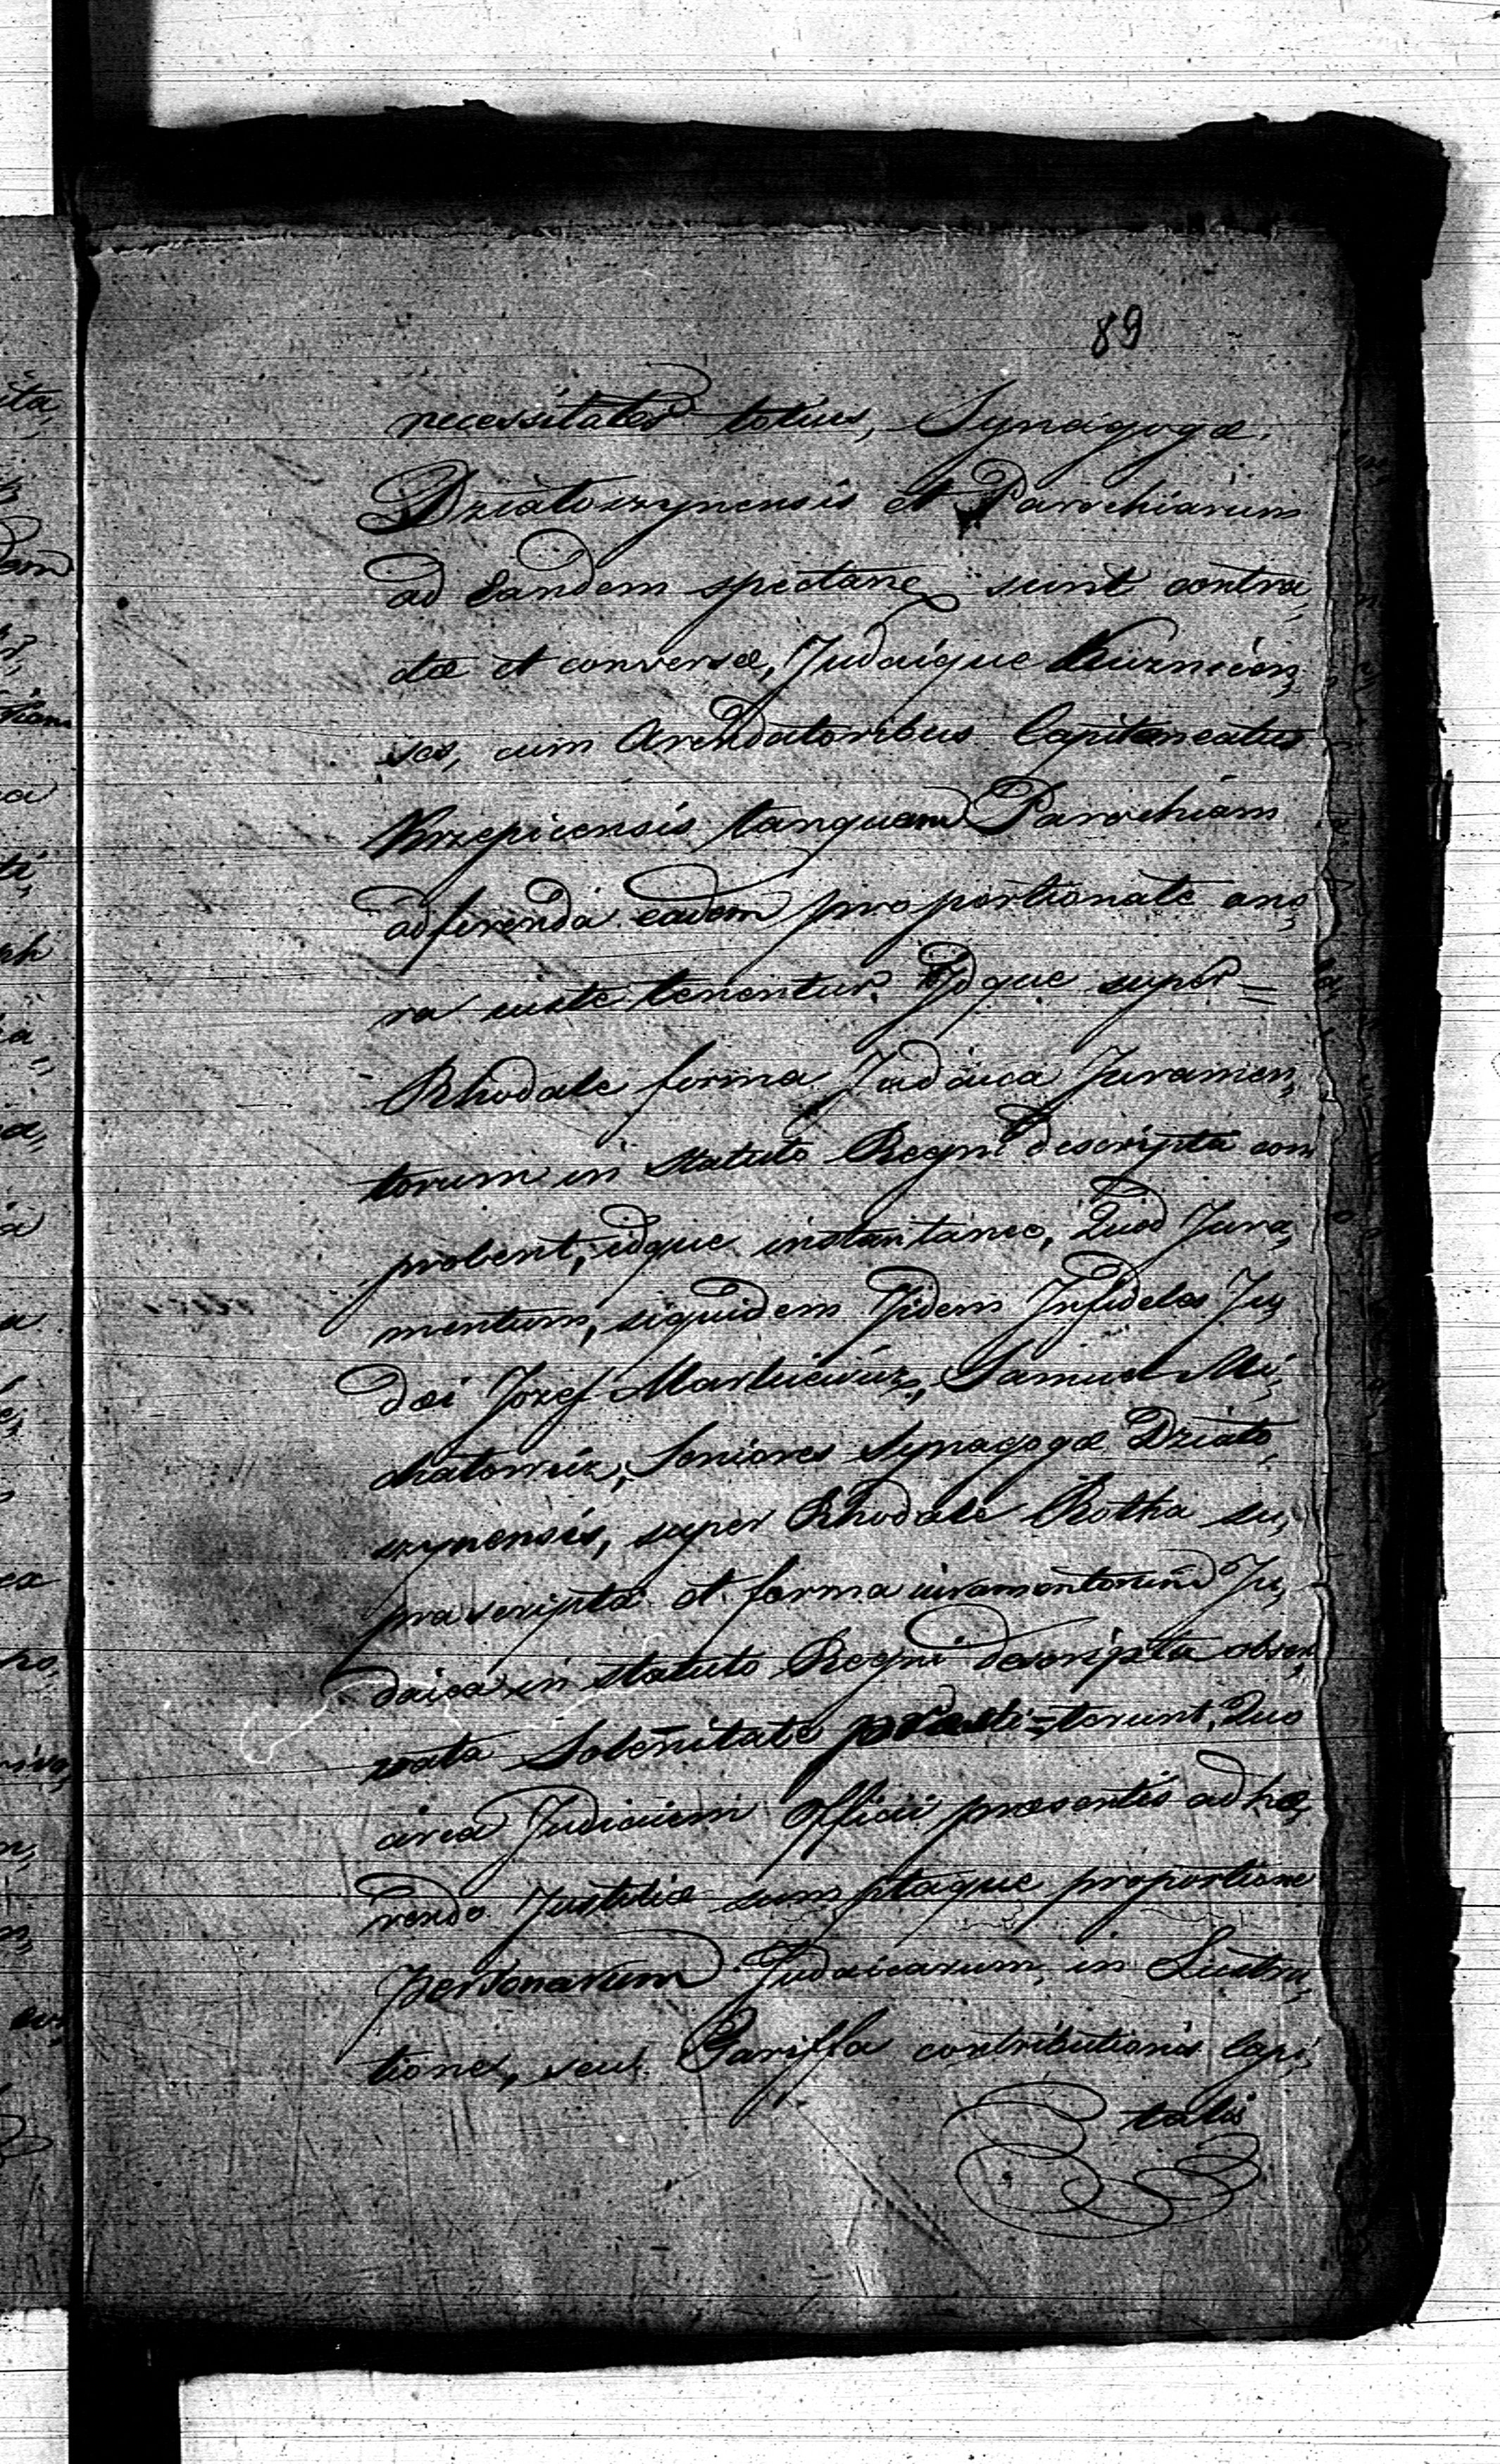 89
necessitates totius, Synagogæ.
Dziatoszynensis et Parochiarum
ad Eandem spectan sunt contra,
ctæ et conversæ, Judaique Kuznicen,
ses, cum Arendatoribus Capitaneatus
Krzepicensis tanquam Parochiam
ad ferenda eadem proportionate one,
ra iuste tenentur. Idque super =
Rhodale forma Judaica Juramen,
torum in Statuto Regni descripta com
probent, idque instantanee, Quod Jura,
mentum, siquidem Iidem Infideles Ju,
dæi Jozef Markiewicz, Samuel Mi,
chatowicz, Seniores Synagogæ Dziato,
szynensis, super Rhodale Rotha su,
pra scripta et forma iuramentorum Ju,
daica in statuto Regni descripta obser,
vata Solenitate præsti=terunt, Quo
circa Judicium Officii præsentis ad hæ,
rendo Justitiæ sum ptaque proportione
personarum Judaicarum, in Lustra,
tione, seu Tariffa contributionis Capi,
talis